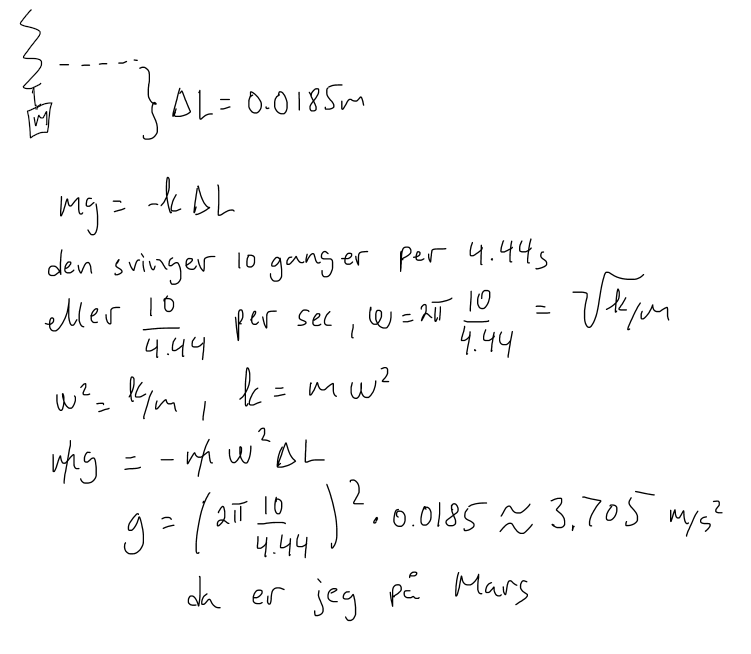 M
ΔL = 0.0185m
mg = -k ΔL
den svinger 10 ganger per 4.44s
eller 10/4.44 per sec, ω = 2π 10/4.44 = √k/m
ω² = k/m, k = m ω²
mg = - m ω² ΔL
g = (2π 10/4.44)² · 0.0185 ≈ 3.705 m/s²
da er jeg på Mars